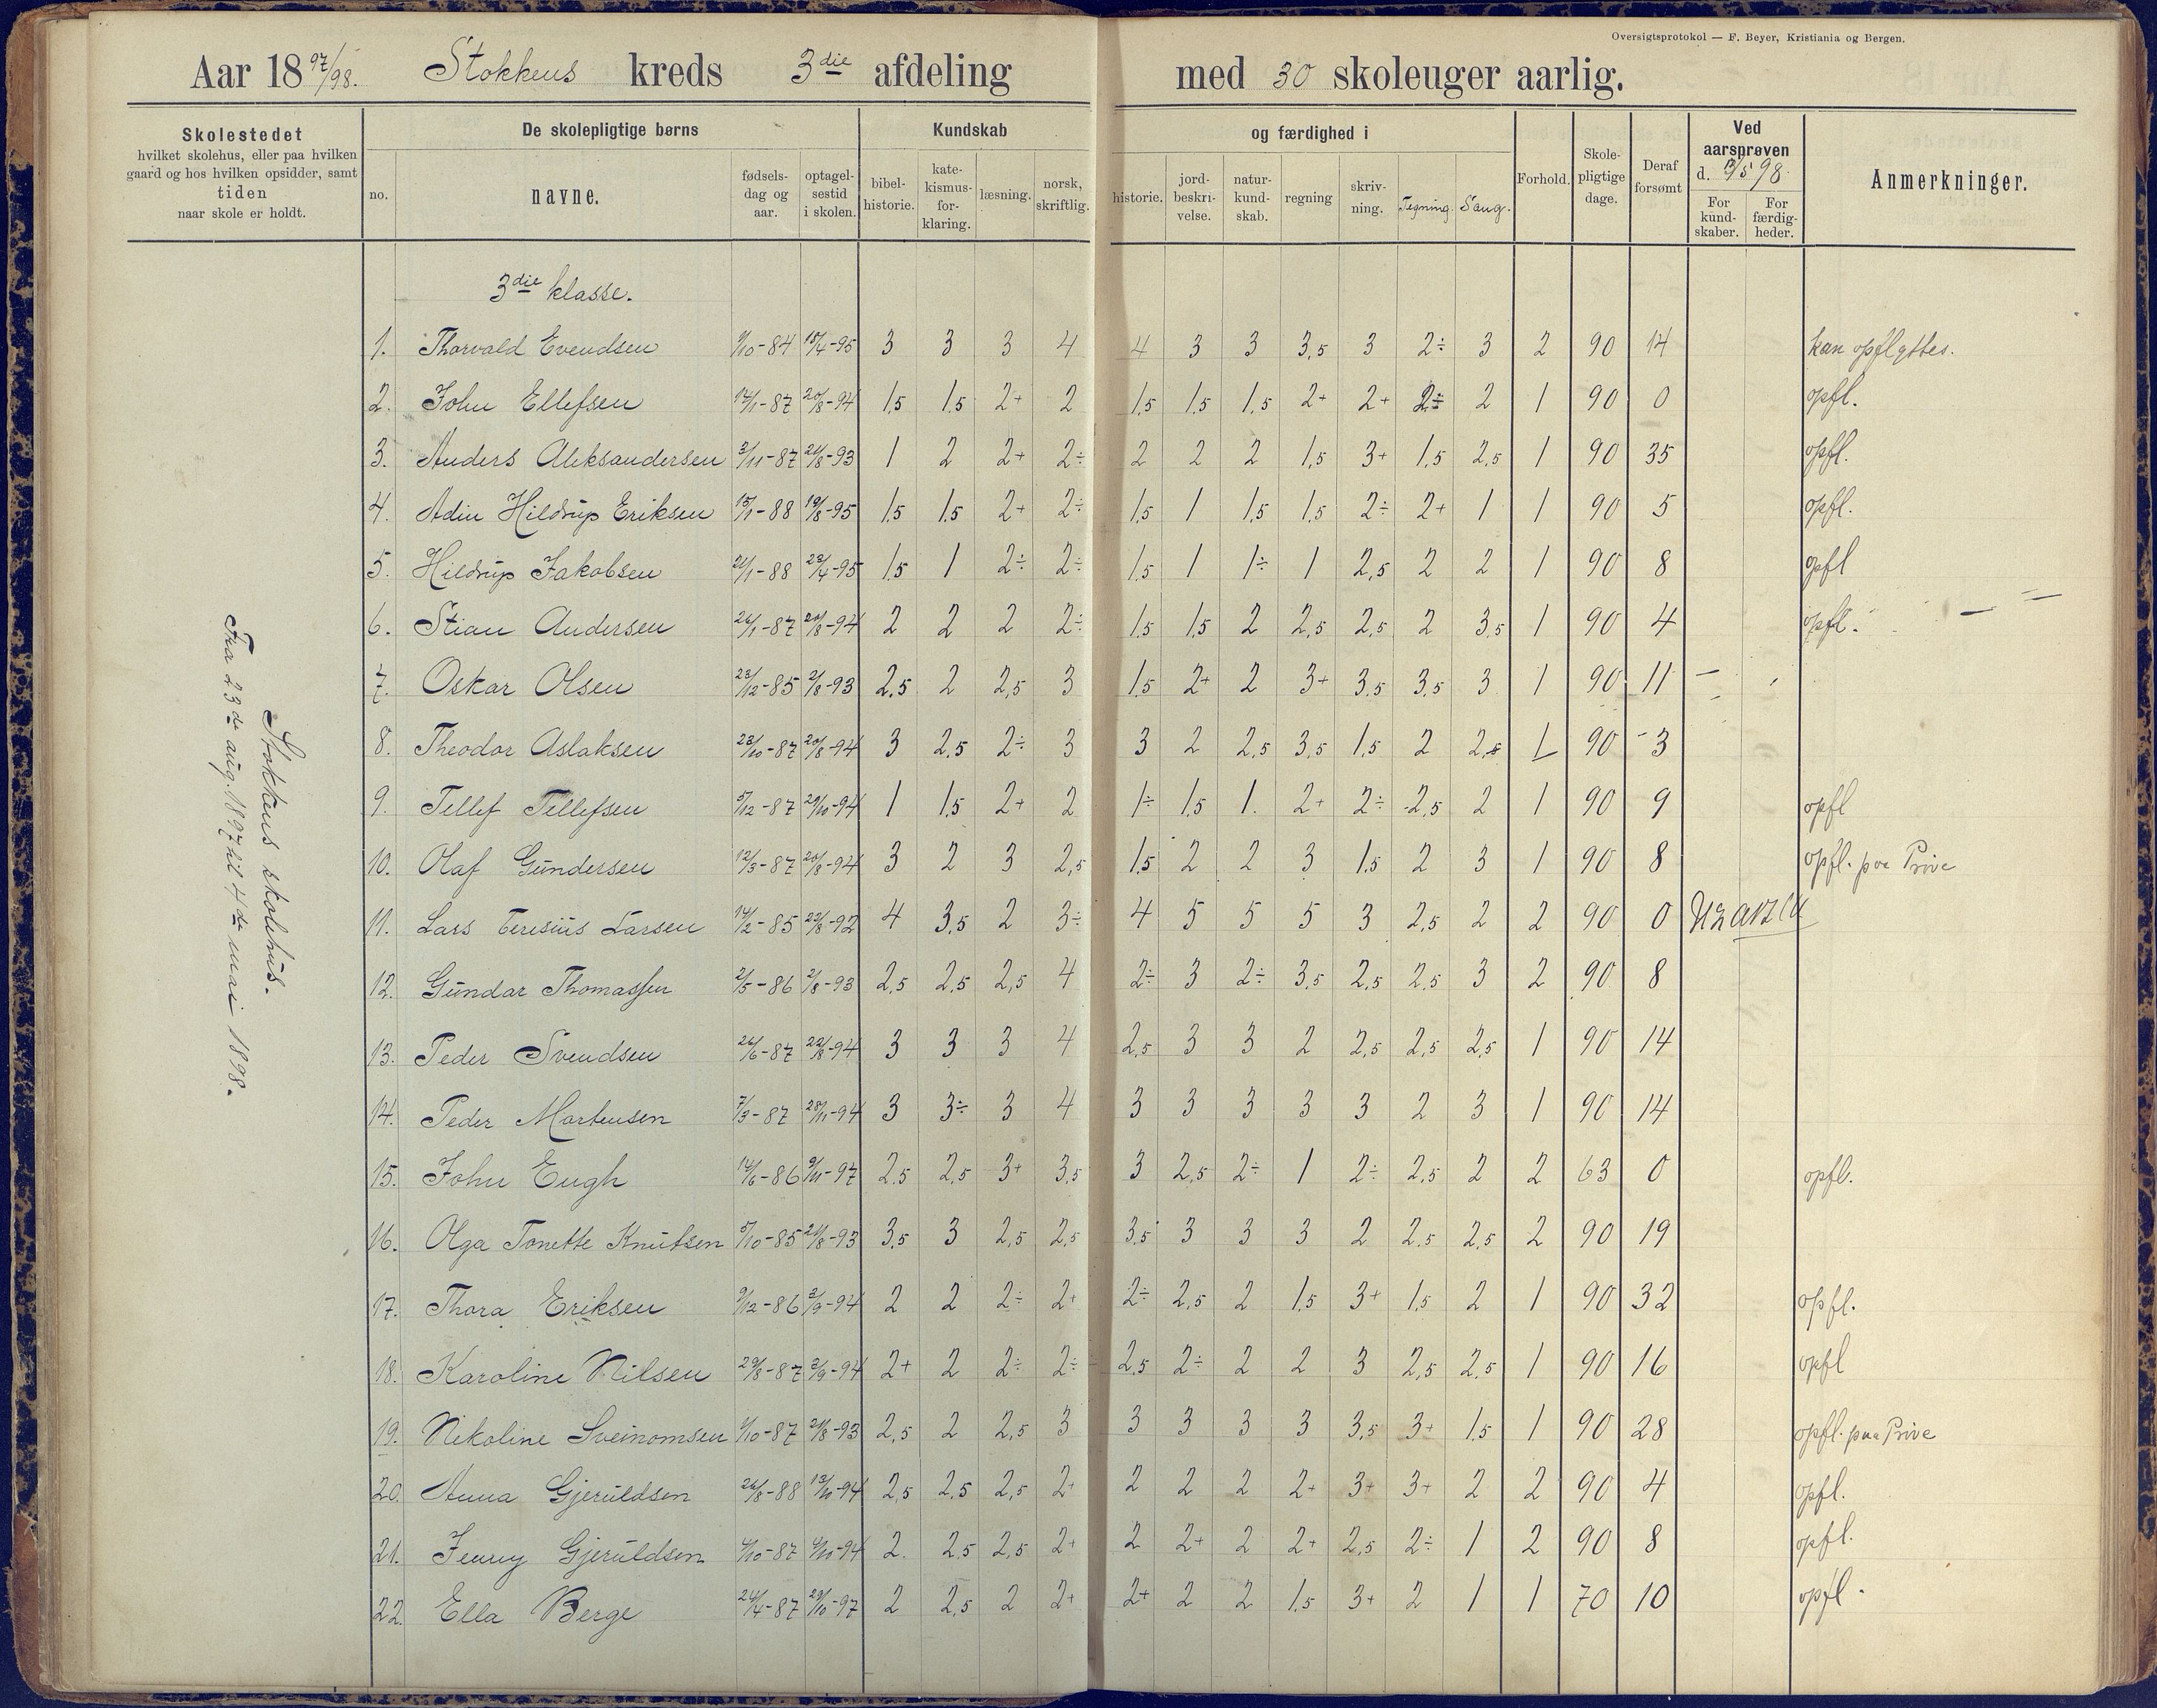 Oversigtsprotokol — F. Beyer, Kristiania og Bergen.
Aar 18 97/98. Stokkens kreds 3die afdeling med 30 skoleuger aarlig.
Skolestedet
hvilket skolehus, eller paa hvilken
gaard og hos hvilken opsidder, samt
tiden
naar skole er holdt.
De skolepligtige børns
no.
navne.
fødsels-
dag og
aar.
optagel-
sestid
i skolen.
Kundskab og færdighed i
bibel-
historie.
kate-
kismus-
for-
klaring.
læsning.
norsk,
skriftlig.
historie.
jord-
beskri-
velse.
natur-
kund-
skab.
regning
skriv-
ning.
Tegning.
Sang.
Forhold.
Skole-
pligtige
dage.
Deraf
forsømt
Ved
aarsprøven
d. 13/5 98.
For
kund-
skaber.
For
færdig-
heder.
Anmerkninger.
Stokkens skolehus.
Fra 23de aug. 1897 til 4de mai 1898.
3die klasse.
1. Thorvald Evendsen 9/10-84 15/4-95 3 3 3 4 4 3 3 3,5 3 2÷ 3 2 90 14 kan opflyttes.
2. John Ellefsen 14/1-87 20/8-94 1,5 1,5 2+ 2 1,5 1,5 1,5 2+ 2+ 2÷ 2 1 90 0 opfl.
3. Anders Aleksandersen 3/11-87 21/8-93 1 2 2+ 2÷ 2 2 2 1,5 3+ 1,5 2,5 1 90 35 opfl.
4. Adin Hildrup Eriksen 15/1-88 19/8-95 1,5 1,5 2+ 2÷ 1,5 1 1,5 1,5 2÷ 2+ 1 1 90 5 opfl.
5. Hildrup Jakobsen 21/1-88 23/4-95 1,5 1 2÷ 2÷ 1,5 1 1÷ 1 2,5 2 2 1 90 8 opfl
6. Stian Andersen 26/1-87 20/8-94 2 2 2 2÷ 1,5 1,5 2 2,5 2,5 2 3,5 1 90 4 opfl.
7. Oskar Olsen 23/12-85 21/8-93 2,5 2 2,5 3 1,5 2+ 2 3+ 3,5 3,5 3 1 90 11
8. Theodor Aslaksen 23/10-87 20/8-94 3 2,5 2÷ 3 3 2 2,5 3,5 1,5 2 2,5 1 90 3
9. Tellef Tellefsen 5/12-87 29/10-94 1 1,5 2+ 2 1÷ 1,5 1. 2+ 2÷ 2,5 2 1 90 9 opfl
10. Olaf Gundersen 12/3-87 20/8-94 3 2 3 2,5 1,5 2 2 3 1,5 2 3 1 90 8 opfl. paa Prøve
11. Lars Teresius Larsen 14/2-85 22/8-92 4 3,5 2 3÷ 4 5 5 5 3 2,5 2 2 90 0
12. Gundar Thomassen 2/5-86 21/8-93 2,5 2,5 2,5 4 2÷ 3 2÷ 3,5 2,5 2,5 3 2 90 8
13. Peder Svendsen 26/6-87 22/8-94 3 3 3 4 2,5 3 3 2 2,5 2,5 2,5 1 90 14
14. Peder Mortensen 7/3-87 28/11-94 3 3÷ 3 4 3 3 3 3 3 2 3 1 90 14
15. John Eugh 14/6-86 9/11-97 2,5 2,5 3+ 3,5 3 2,5 2÷ 1 2÷ 2,5 2 2 63 0 opfl.
16. Olga Tonette Knutsen 5/10-85 21/8-93 3,5 3 2,5 2,5 3,5 3 3 3 2 2,5 2,5 2 90 19
17. Thora Eriksen 9/12-86 3/9-94 2 2 2÷ 2+ 2÷ 2,5 2 1,5 3+ 1,5 2 1 90 32 opfl.
18. Karoline Nilsen 29/8-87 3/9-94 2+ 2 2÷ 2÷ 2,5 2÷ 2 2 3 2,5 2,5 1 90 16 opfl
19. Nikoline Sveinomsen 1/10-87 21/8-93 2,5 2 2,5 3 3 3 3 3 3,5 3+ 1,5 1 90 28 opfl. paa Prøve
20. Anna Gjeruldsen 26/8-88 13/10-94 2,5 2,5 2,5 2+ 2 2 2 2+ 3+ 3+ 2 2 90 4 opfl.
21. Jenny Gjeruldsen 4/10-87 4/10-94 2. 2,5 2,5 2+ 2 2+ 2 2+ 2,5 2÷ 1 2 90 8 opfl.
22. Ella Berge 24/4-87 29/10-97 2 2,5 2 2+ 2+ 2 2 1,5 3+ 2 1 1 70 10 opfl.